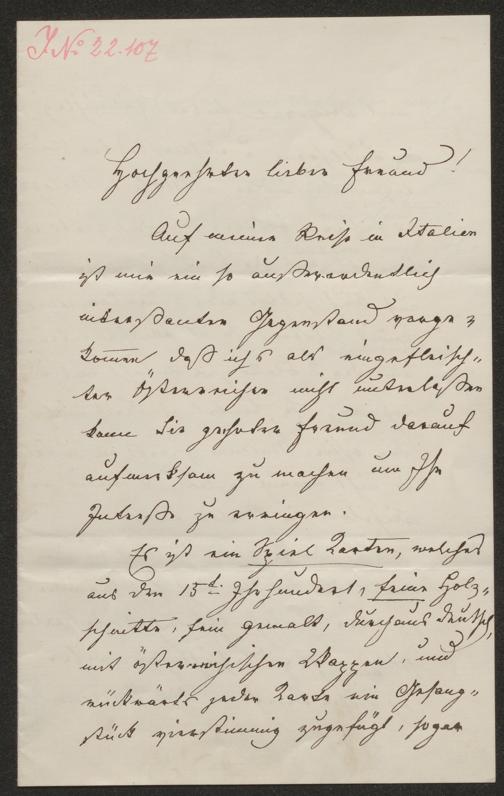 J No 22.107
Hochgeehrter lieber Freund!
Auf meiner Reise in Italien
ist mir ein so außerordentlich
interessanter Gegenstand vorge=
kommen daß ich's als eingefleisch=
ter Österreicher nicht unterlassen
kann Sie geehrter Freund darauf
aufmerksam zu machen um Ihr
Interesse zu erringen.
Es ist ein Spiel Karten, welches
aus den 15t Jhrhundert, feine Holz=
schnitte, fein gemalt, durchaus deutsch,
mit österreichischen Wappen, und
rückwärts jeder Karte ein Gesang=
stück vierstimmig zugefügt, sogar